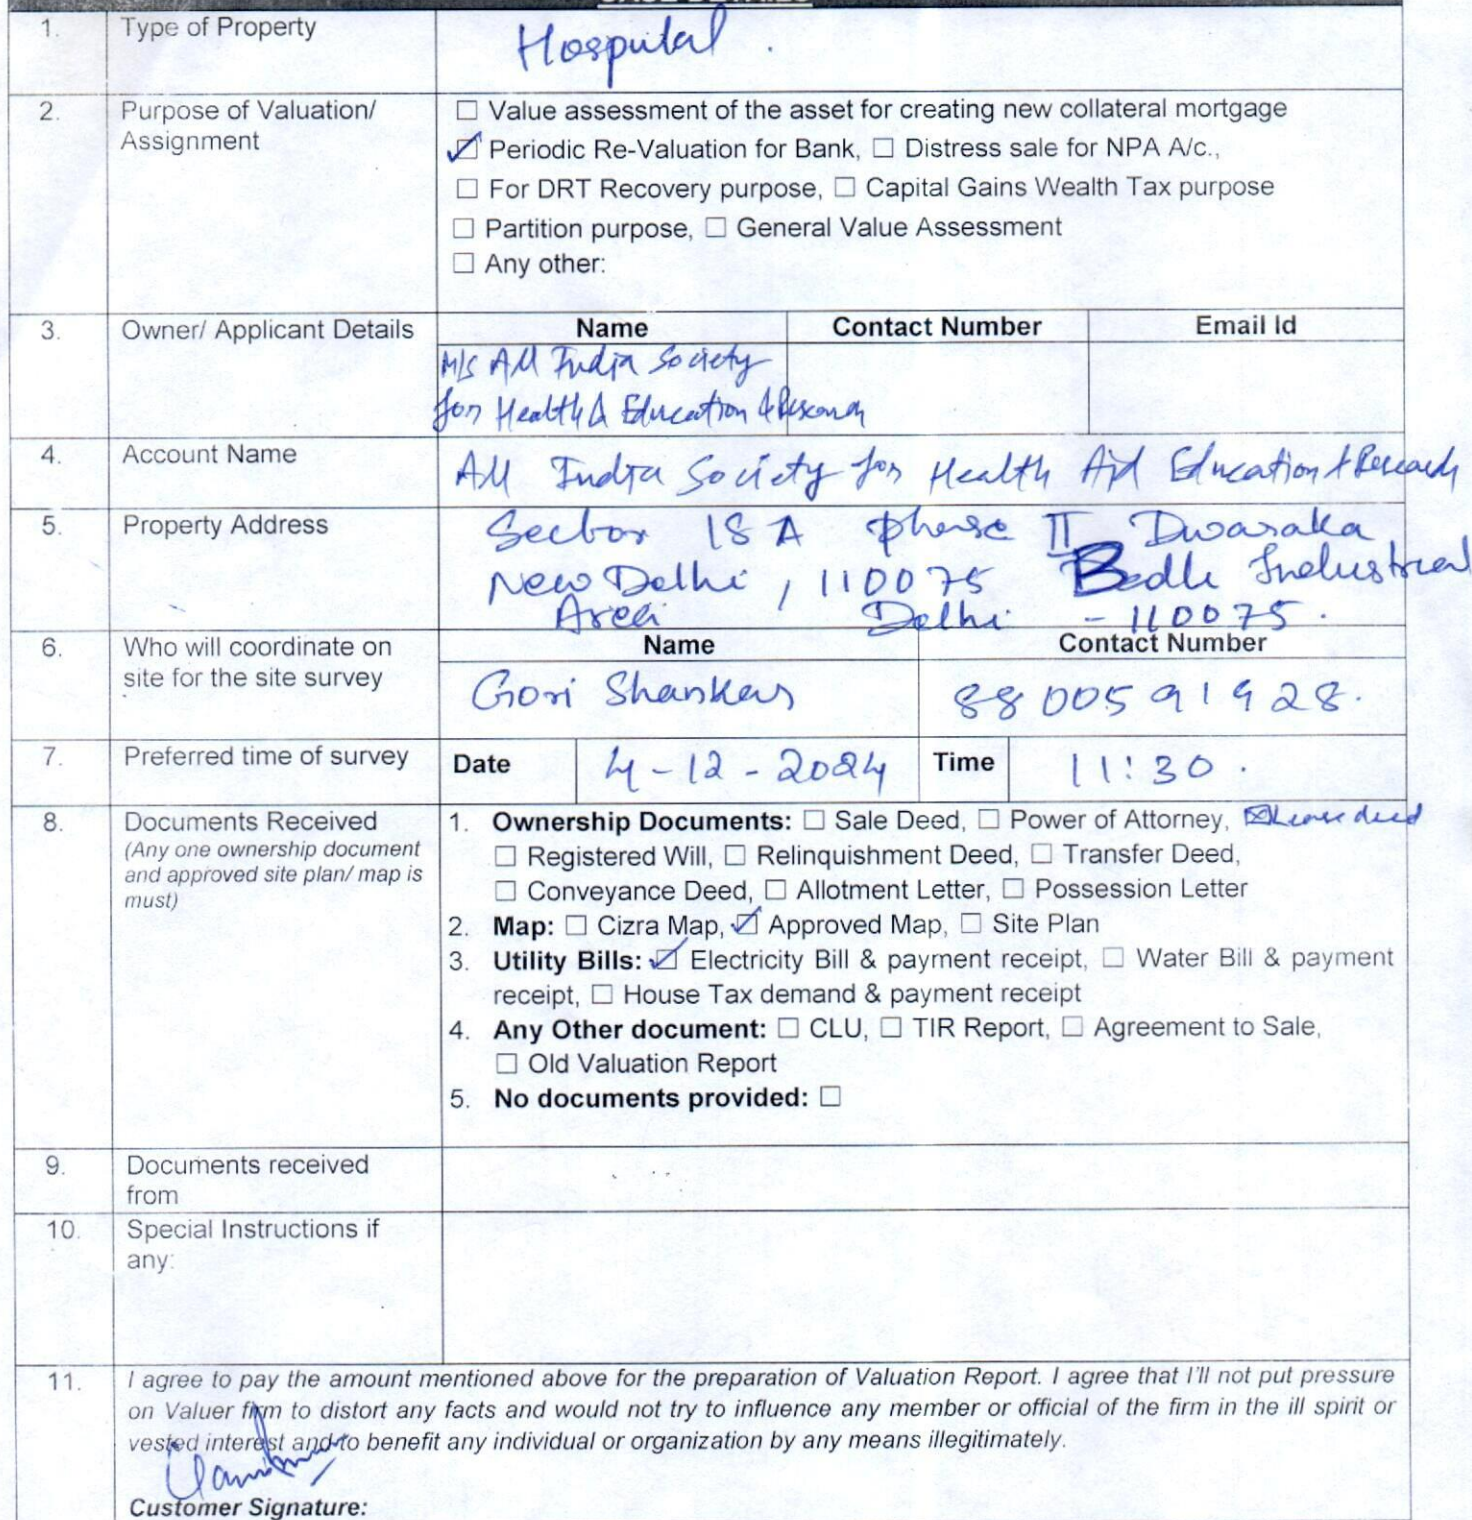 CASE DETAILS
1. Type of Property Hospital.
2. Purpose of Valuation/ Assignment
☐ Value assessment of the asset for creating new collateral mortgage
☑ Periodic Re-Valuation for Bank, ☐ Distress sale for NPA A/c.,
☐ For DRT Recovery purpose, ☐ Capital Gains Wealth Tax purpose
☐ Partition purpose, ☐ General Value Assessment
☐ Any other:
3. Owner/ Applicant Details Name Contact Number Email Id
M/S All India Society
for Health & Education & Research
4. Account Name All India Society for Health Aid Education & Research
5. Property Address Sector 18 A phase II Dwaraka
New Delhi, 110075 Bedli Industrial
Area Delhi - 110075.
6. Who will coordinate on Name Contact Number
site for the site survey Gori Shankar 8800591928.
7. Preferred time of survey Date 4-12-2024 Time 11:30.
8. Documents Received
(Any one ownership document
and approved site plan/ map is
must)
1. Ownership Documents: ☐ Sale Deed, ☐ Power of Attorney, ☒ Lease deed
☐ Registered Will, ☐ Relinquishment Deed, ☐ Transfer Deed,
☐ Conveyance Deed, ☐ Allotment Letter, ☐ Possession Letter
2. Map: ☐ Cizra Map, ☑ Approved Map, ☐ Site Plan
3. Utility Bills: ☑ Electricity Bill & payment receipt, ☐ Water Bill & payment
receipt, ☐ House Tax demand & payment receipt
4. Any Other document: ☐ CLU, ☐ TIR Report, ☐ Agreement to Sale,
☐ Old Valuation Report
5. No documents provided: ☐
9. Documents received
from
10. Special Instructions if
any:
11. I agree to pay the amount mentioned above for the preparation of Valuation Report. I agree that I'll not put pressure
on Valuer firm to distort any facts and would not try to influence any member or official of the firm in the ill spirit or
vested interest and to benefit any individual or organization by any means illegitimately.
Customer Signature: